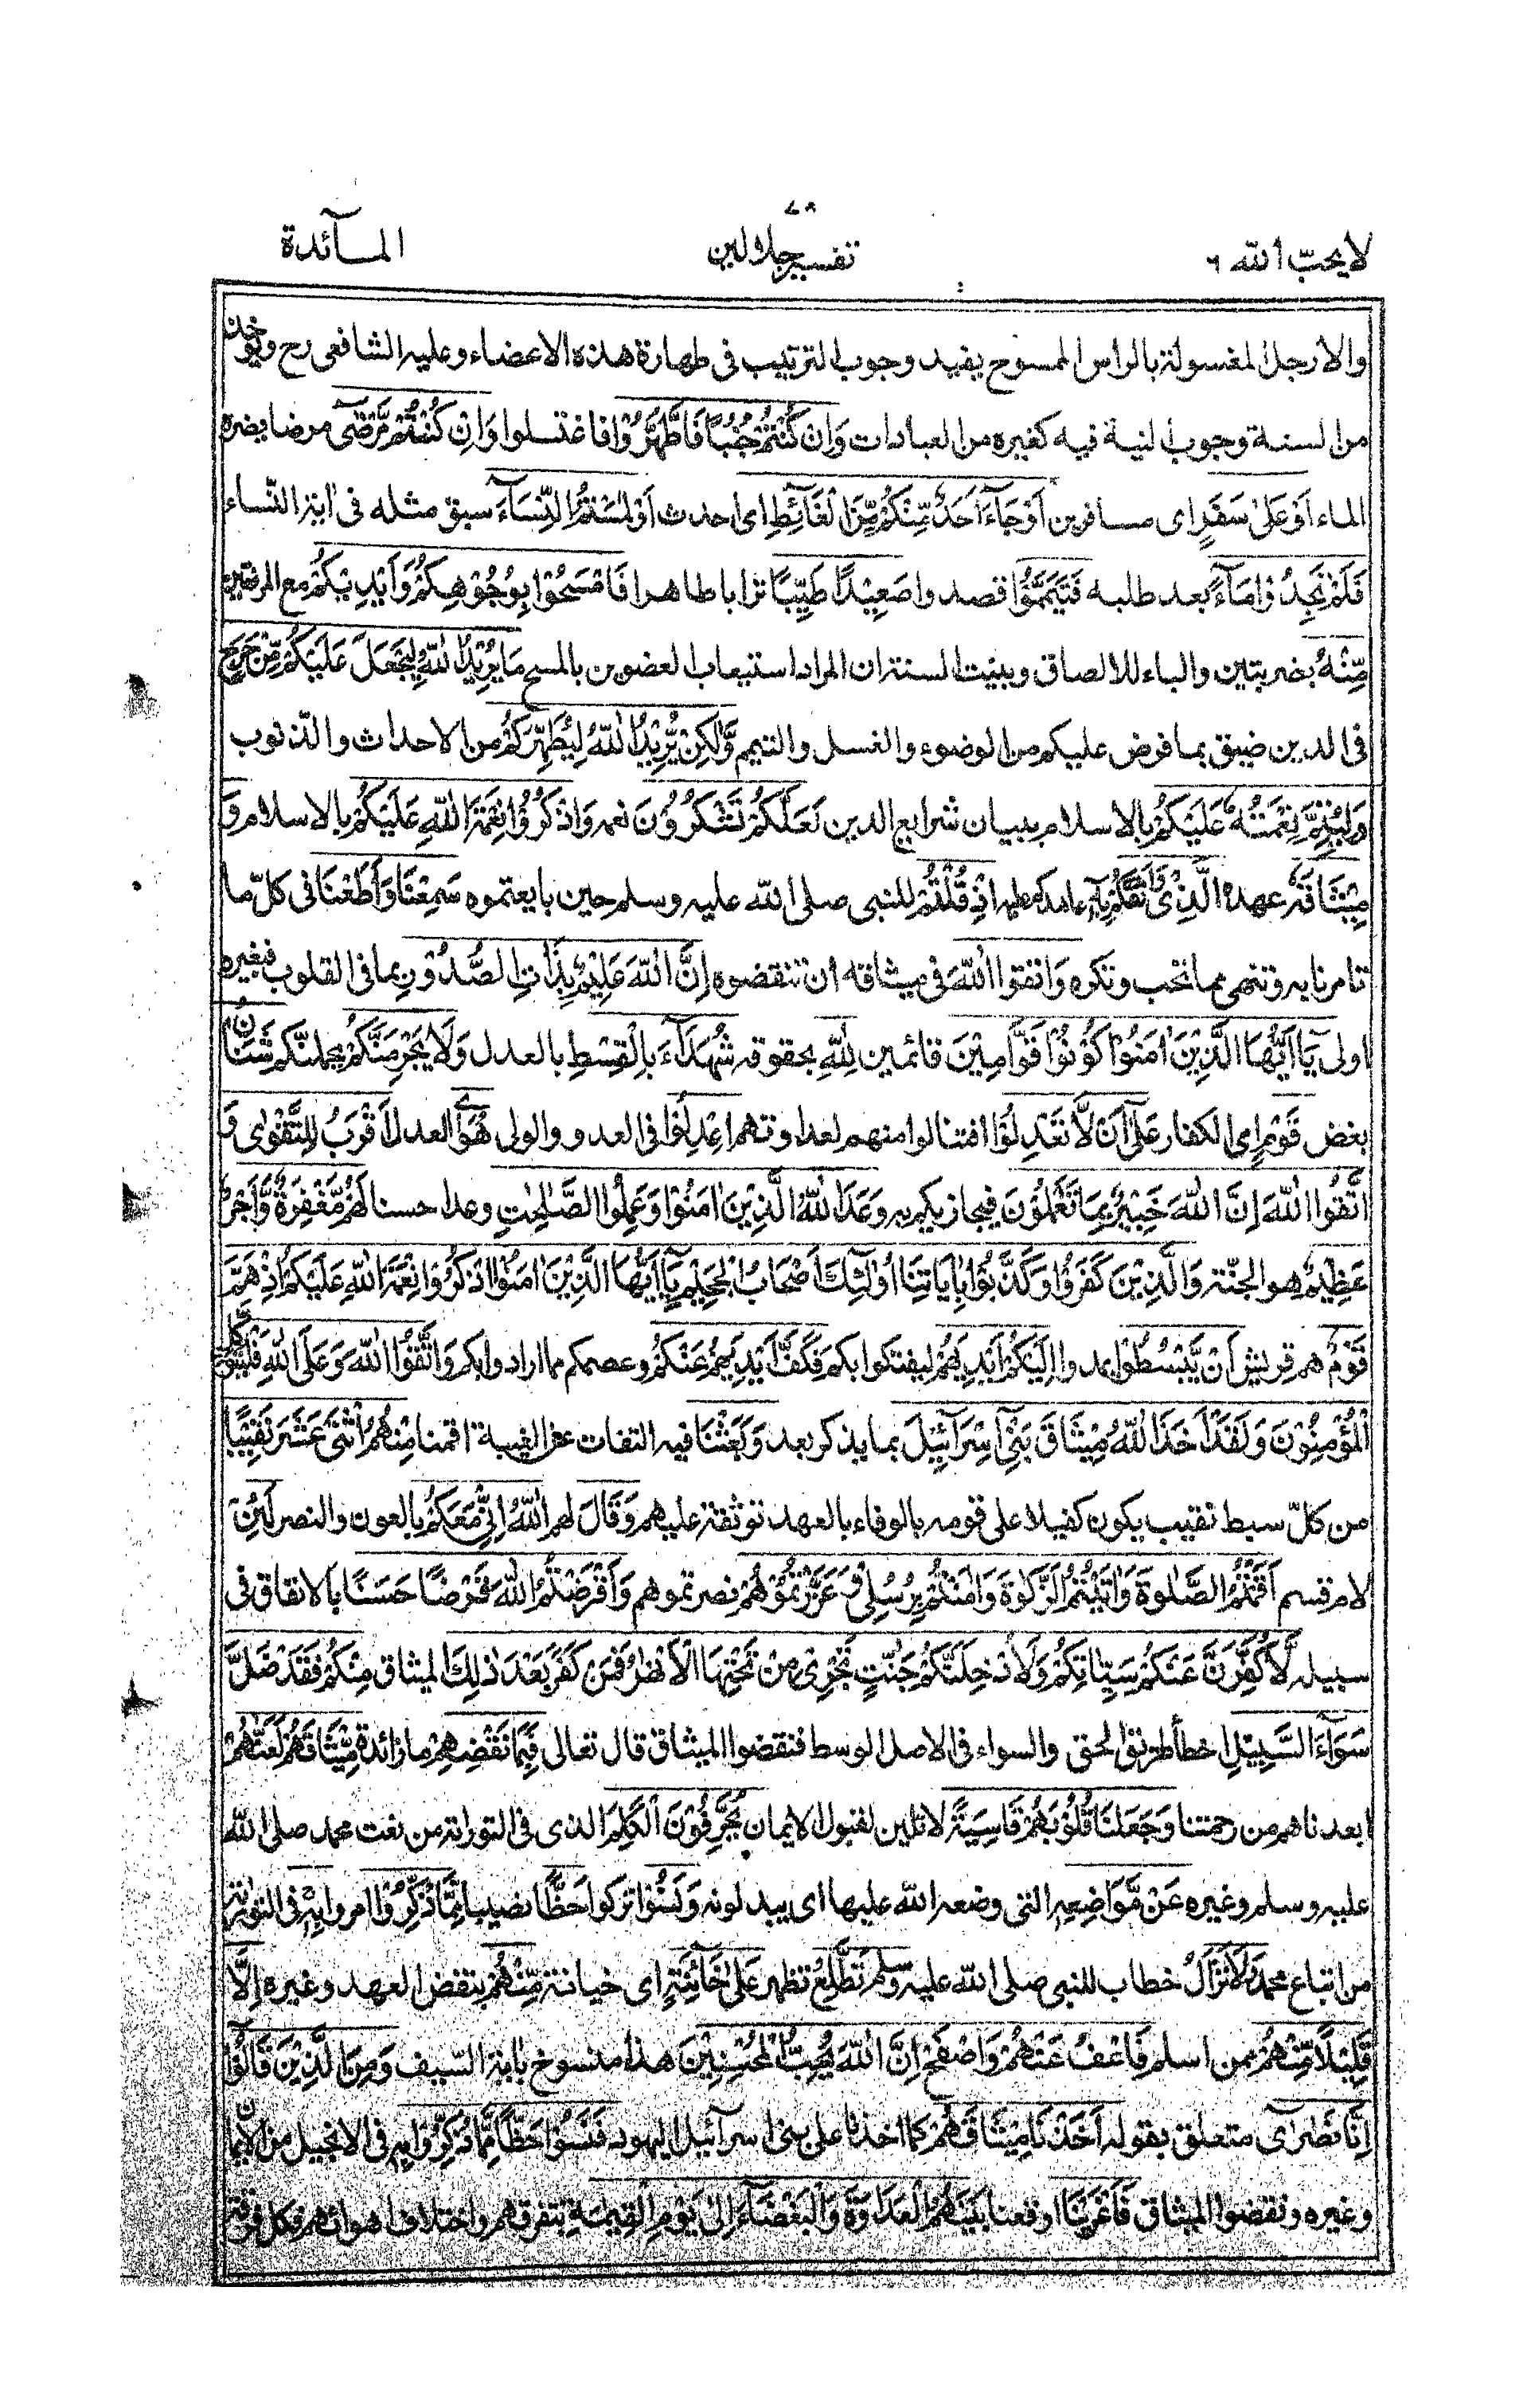 ٧٨
لا يحبّ الله ٦
تفسير جلالين
المآئدة
والارجل المغسولة بالراس الممسوح يفيد وجوب الترتيب فى طهارة هذه الاعضاء وعليه الشافعى رح ويؤخذ
من السنة وجوب النية فيه كغيره من العبادات وَاِنْ كُنْتُمْ جُنُبًا فَاطَّهَّرُوْا فاغتسلوا وَاِنْ كُنْتُمْ مَّرْضٰٓى مرضا يضره
الماء اَوْ عَلٰى سَفَرٍ اى مسافرين اَوْ جَآءَ اَحَدٌ مِّنْكُمْ مِّنَ الْغَآئِطِ اى احدث اَوْ لٰمَسْتُمُ النِّسَآءَ سبق مثله فى اية النّساء
فَلَمْ تَجِدُوْا مَآءً بعد طلبه فَتَيَمَّمُوْا اقصدوا صَعِيْدًا طَيِّبًا ترابا طاهرا فَامْسَحُوْا بِوُجُوْهِكُمْ وَاَيْدِيْكُمْ مع المرفقين
مِّنْهُ بضربتين والباء للالصاق وبينت السنة ان المراد استيعاب العضوين بالمسح مَا يُرِيْدُ اللّٰهُ لِيَجْعَلَ عَلَيْكُمْ مِّنْ حَرَجٍ
فى الدين ضيق بما فرض عليكم من الوضوء والغسل والتيمم وَّلٰكِنْ يُّرِيْدُ اللّٰهُ لِيُطَهِّرَكُمْ من الاحداث والذنوب
وَلِيُتِمَّ نِعْمَتَهٗ عَلَيْكُمْ بالاسلام ببيان شرايع الدين لَعَلَّكُمْ تَشْكُرُوْنَ نعمه وَاذْكُرُوْا نِعْمَةَ اللّٰهِ عَلَيْكُمْ بالاسلام وَ
مِيْثَاقَهٗ عهده الَّذِىْ وَاثَقَكُمْ بِهٖٓ عاهدكم عليه اِذْ قُلْتُمْ للنبى صلى الله عليه وسلم حين بايعتموه سَمِعْنَا وَاَطَعْنَا فى كلّ ما
تامرنا به وتنهى مما نحب ونكره وَاتَّقُوا اللّٰهَ فى ميثاقه ان تنقضوه اِنَّ اللّٰهَ عَلِيْمٌۢ بِذَاتِ الصُّدُوْرِ بما فى القلوب فبغيره
اولى يٰٓاَيُّهَا الَّذِيْنَ اٰمَنُوْا كُوْنُوْا قَوَّامِيْنَ قائمين لِلّٰهِ بحقوقه شُهَدَآءَ بِالْقِسْطِ بالعدل وَلَا يَجْرِمَنَّكُمْ يحملنّكم شَنَاٰنُ
بغض قَوْمٍ اى الكفار عَلٰٓى اَنْ لَّا تَعْدِلُوْا فتنالوا منهم لعداوتهم اِعْدِلُوْا فى العدو والولى هُوَ اى العدل اَقْرَبُ لِلتَّقْوٰى وَ
اتَّقُوا اللّٰهَ اِنَّ اللّٰهَ خَبِيْرٌۢ بِمَا تَعْمَلُوْنَ فيجازيكم به وَعَدَ اللّٰهُ الَّذِيْنَ اٰمَنُوْا وَعَمِلُوا الصّٰلِحٰتِ وعدا حسنا لَهُمْ مَّغْفِرَةٌ وَّاَجْرٌ
عَظِيْمٌ هو الجنّة وَالَّذِيْنَ كَفَرُوْا وَكَذَّبُوْا بِاٰيَاتِنَا اُولٰٓئِكَ اَصْحَابُ الْجَحِيْمِ يٰٓاَيُّهَا الَّذِيْنَ اٰمَنُوا اذْكُرُوْا نِعْمَةَ اللّٰهِ عَلَيْكُمْ اِذْ هَمَّ
قَوْمٌ هم قريش اَنْ يَّبْسُطُوْا يمدوا اِلَيْكُمْ اَيْدِيَهُمْ ليفتكوا بكم فَكَفَّ اَيْدِيَهُمْ عَنْكُمْ وعصمكم مما ارادوا بكم وَاتَّقُوا اللّٰهَ وَعَلَى اللّٰهِ فَلْيَتَوَكَّلِ
الْمُؤْمِنُوْنَ وَلَقَدْ اَخَذَ اللّٰهُ مِيْثَاقَ بَنِىْٓ اِسْرَآئِيْلَ بما يذكر بعد وَبَعَثْنَا فيه التفات عن الغيبة اقمنا مِنْهُمُ اثْنَىْ عَشَرَ نَقِيْبًا
من كلّ سبط نقيب يكون كفيلا على قومه بالوفاء بالعهد توثقة عليهم وَقَالَ لهم اللّٰهُ اِنِّىْ مَعَكُمْ بالعون والنصر لَئِنْ
لام قسم اَقَمْتُمُ الصَّلٰوةَ وَاٰتَيْتُمُ الزَّكٰوةَ وَاٰمَنْتُمْ بِرُسُلِىْ وَعَزَّرْتُمُوْهُمْ نصرتموهم وَاَقْرَضْتُمُ اللّٰهَ قَرْضًا حَسَنًا بالانفاق فى
سبيله لَّاُكَفِّرَنَّ عَنْكُمْ سَيِّاٰتِكُمْ وَلَاُدْخِلَنَّكُمْ جَنّٰتٍ تَجْرِىْ مِنْ تَحْتِهَا الْاَنْهٰرُ فَمَنْ كَفَرَ بَعْدَ ذٰلِكَ الميثاق مِنْكُمْ فَقَدْ ضَلَّ
سَوَآءَ السَّبِيْلِ اخطأ طريق الحق والسواء فى الاصل الوسط فنقضوا الميثاق قال تعالى فَبِمَا نَقْضِهِمْ ما زائدة مِّيْثَاقَهُمْ لَعَنّٰهُمْ
ابعدناهم من رحمتنا وَجَعَلْنَا قُلُوْبَهُمْ قَاسِيَةً لا تلين لقبول الايمان يُحَرِّفُوْنَ الْكَلِمَ الذى فى التوراة من نعت محمد صلى الله
عليه وسلم وغيره عَنْ مَّوَاضِعِهٖ التى وضعه الله عليها اى يبدلونه وَنَسُوْا تركوا حَظًّا نصيبا مِّمَّا ذُكِّرُوْا امروا بِهٖ فى التوراة
من اتباع محمد وَلَا تَزَالُ خطاب للنبى صلى الله عليه وسلم تَطَّلِعُ تظهر عَلٰى خَآئِنَةٍ اى خيانة مِّنْهُمْ بنقض العهد وغيره اِلَّا
قَلِيْلًا مِّنْهُمْ ممن اسلم فَاعْفُ عَنْهُمْ وَاصْفَحْ اِنَّ اللّٰهَ يُحِبُّ الْمُحْسِنِيْنَ هذا منسوخ باية السّيف وَمِنَ الَّذِيْنَ قَالُوْٓا
اِنَّا نَصٰرٰٓى متعلق بقوله اَخَذْنَا مِيْثَاقَهُمْ كما اخذنا على بنى اسرآئيل اليهود فَنَسُوْا حَظًّا مِّمَّا ذُكِّرُوْا بِهٖ فى الانجيل من الايمان
وغيره ونقضوا الميثاق فَاَغْرَيْنَا اوقعنا بَيْنَهُمُ الْعَدَاوَةَ وَالْبَغْضَآءَ اِلٰى يَوْمِ الْقِيٰمَةِ بتفرقهم واختلاف اهوائهم فكل فرقة